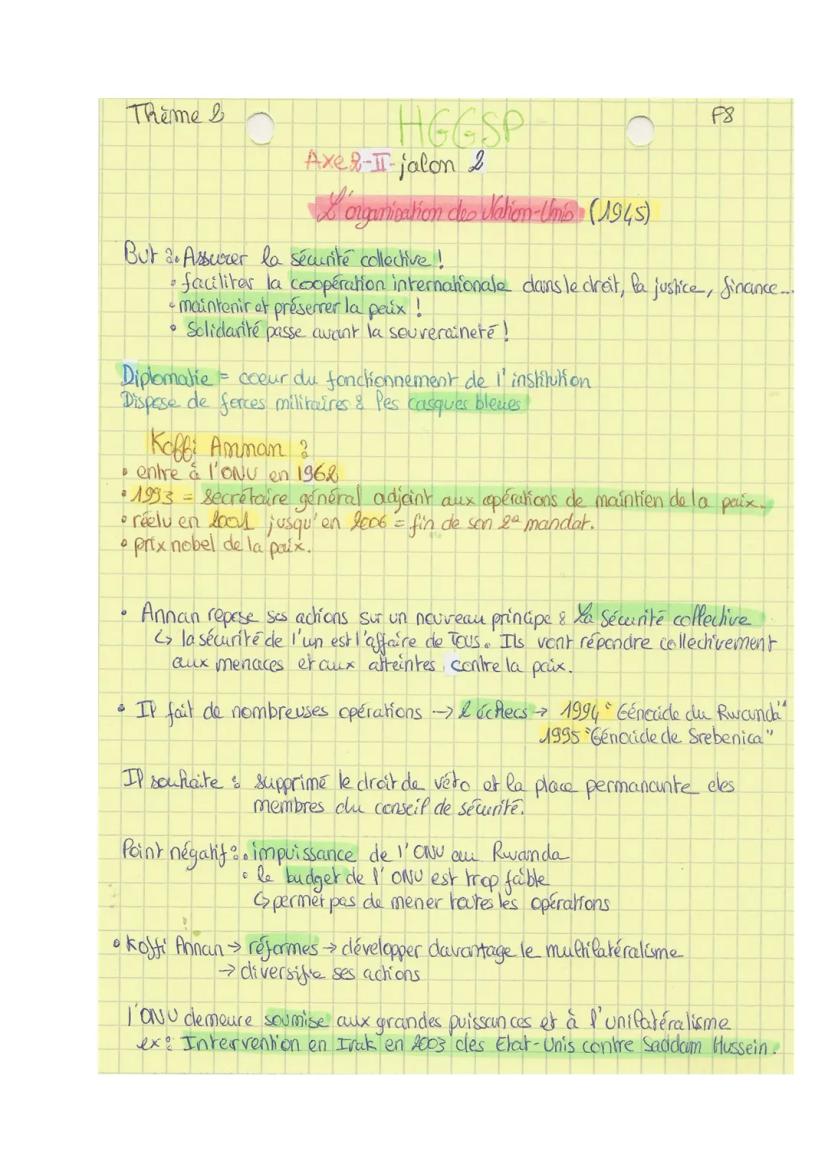 Thème 2
HGGSP
F8
Axe 2-II-jalon 2
L'organisation des Nation-Unis (1945)
But : • Assurer la sécurité collective !
• faciliter la coopération internationale dans le droit, la justice, finance...
• maintenir et préserver la paix !
• Solidarité passe avant la souveraineté !
Diplomatie = coeur du fonctionnement de l'institution
Dispose de forces militaires : les casques bleues
Koffi Annan :
• entre à l'ONU en 1962
• 1993 = secrétaire général adjoint aux opérations de maintien de la paix.
• réelu en 2001 jusqu'en 2006 = fin de son 2e mandat.
• prix nobel de la paix.
• Annan repose ses actions sur un nouveau principe : La sécurité collective
↳ la sécurité de l'un est l'affaire de TOUS. Ils vont répondre collectivement
aux menaces et aux atteintes contre la paix.
• Il fait de nombreuses opérations → 2 échecs → 1994 "Génocide du Rwanda"
1995 "Génocide de Srebenica"
Il souhaite : supprimé le droit de véto et la place permanante des
membres du conseil de sécurité.
Point négatif : • impuissance de l'ONU au Rwanda
• le budget de l'ONU est trop faible
↳ permet pas de mener toutes les opérations
• Koffi Annan → réformes → développer davantage le multilatéralisme
→ diversifie ses actions
l'ONU demeure soumise aux grandes puissances et à l'unilatéralisme
ex : Intervention en Irak en 2003 des Etat-Unis contre Saddam Hussein.